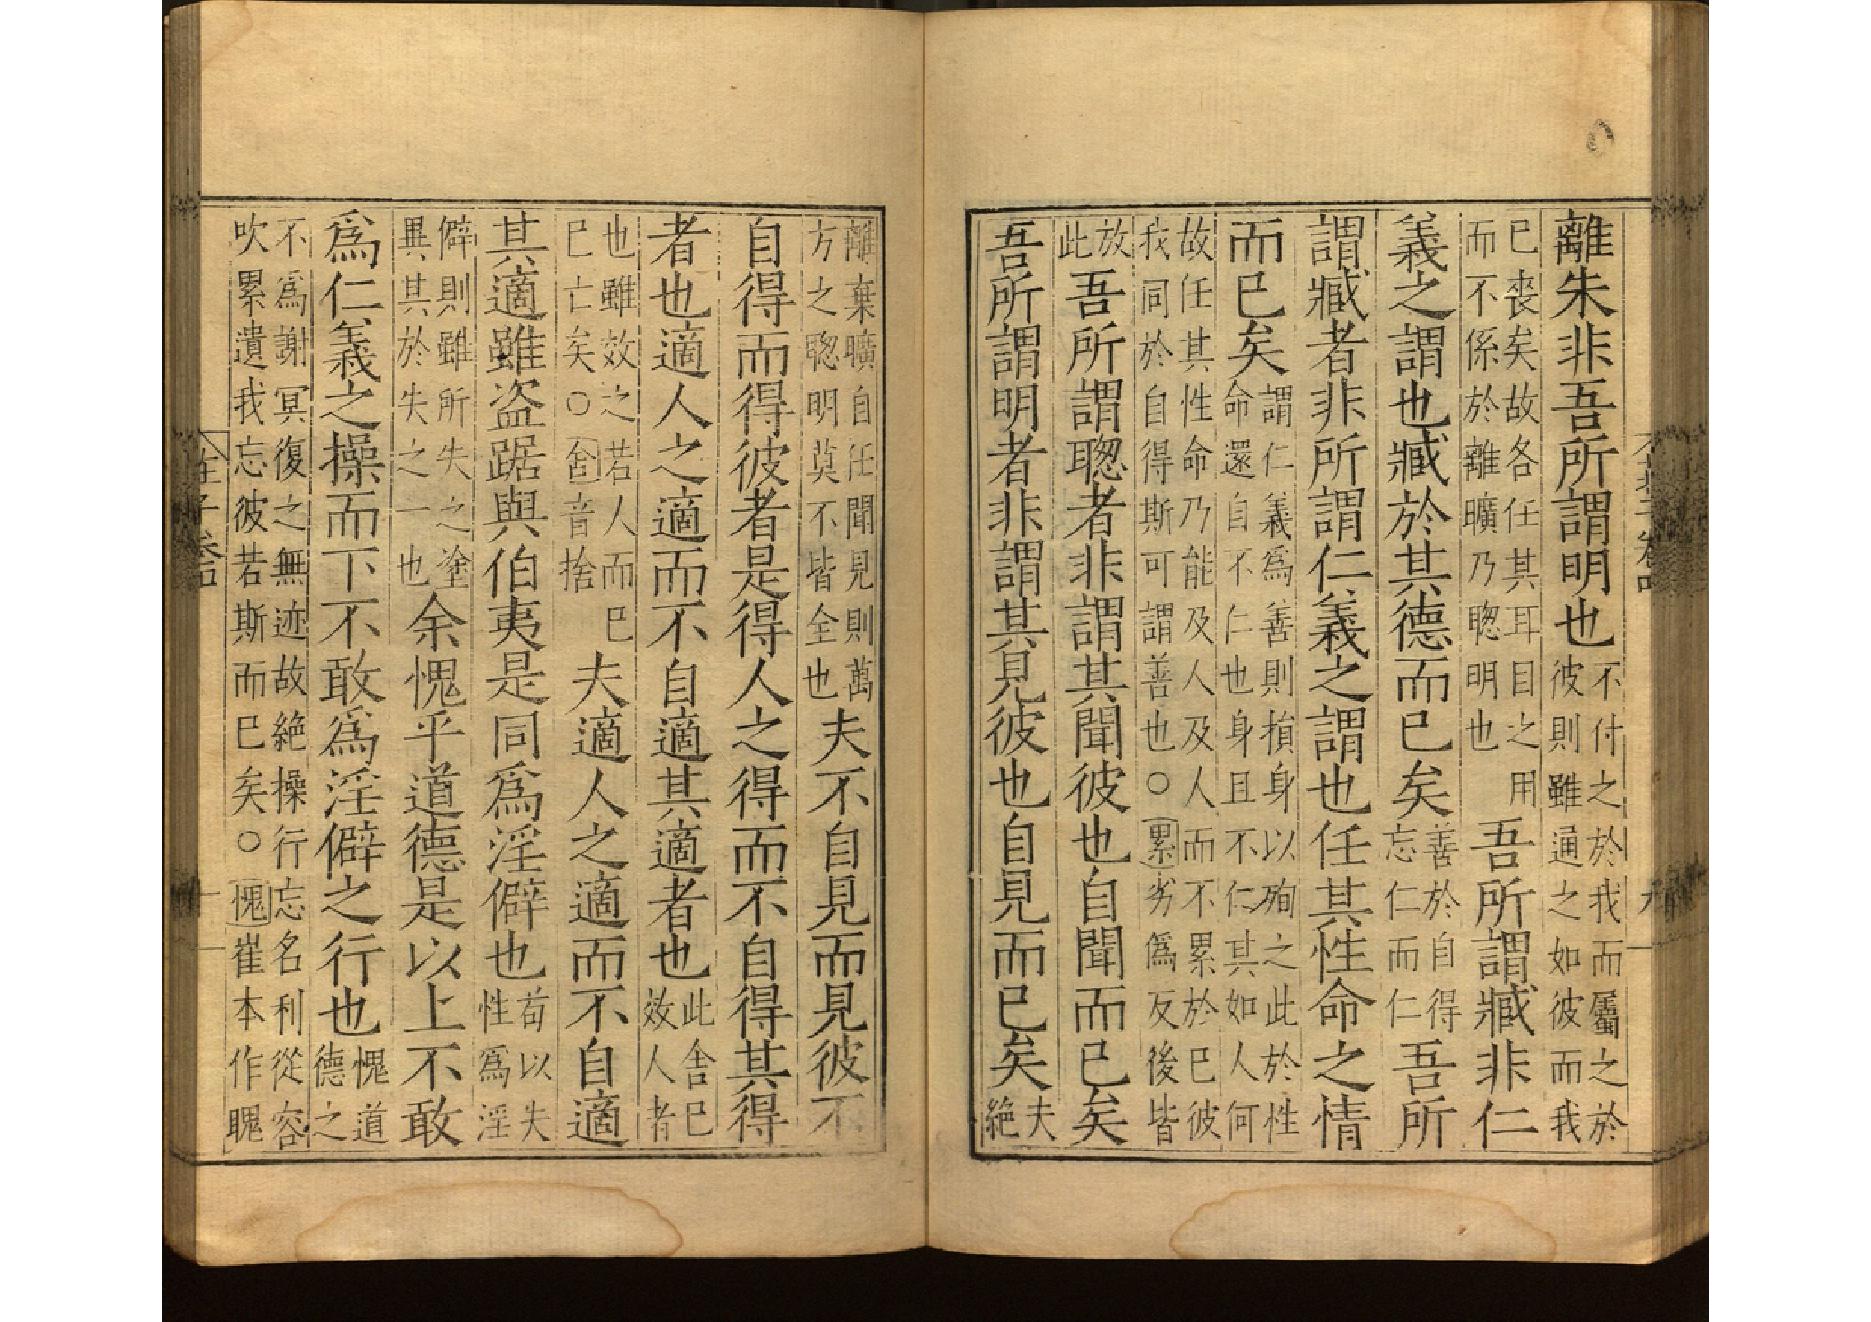 離朱非吾所謂明也不付之於我而屬之於彼則雖通之如彼而我
已喪矣故各任其耳目之用而不係於離曠乃聦明也吾所謂臧非仁
義之謂也臧於其德而已矣善於自得忘仁而仁吾所
謂臧者非所謂仁義之謂也任其性命之情
而已矣謂仁義爲善則損身以殉之此於性命還自不仁也身且不仁其如人何
故任其性命乃能及人及人而不累於已彼我同於自得斯可謂善也○累劣僞反後皆
放此吾所謂聦者非謂其聞彼也自聞而已矣
吾所謂明者非謂其見彼也自見而已矣夫絶
離棄曠自任聞見則萬方之聦明莫不皆全也夫不自見而見彼不
自得而得彼者是得人之得而不自得其得
者也適人之適而不自適其適者也此舍已效人者
也雖效之若人而已已亡矣○舍音捨夫適人之適而不自適
其適雖盗踞與伯夷是同爲淫僻也苟以失性爲淫
僻則雖所失之塗異其於失之一也余愧乎道德是以上不敢
爲仁義之操而下不敢爲淫僻之行也愧道德之
不爲謝冥復之無迹故絶操行忘名利從容吹累遺我忘彼若斯而已矣○愧崔本作聭